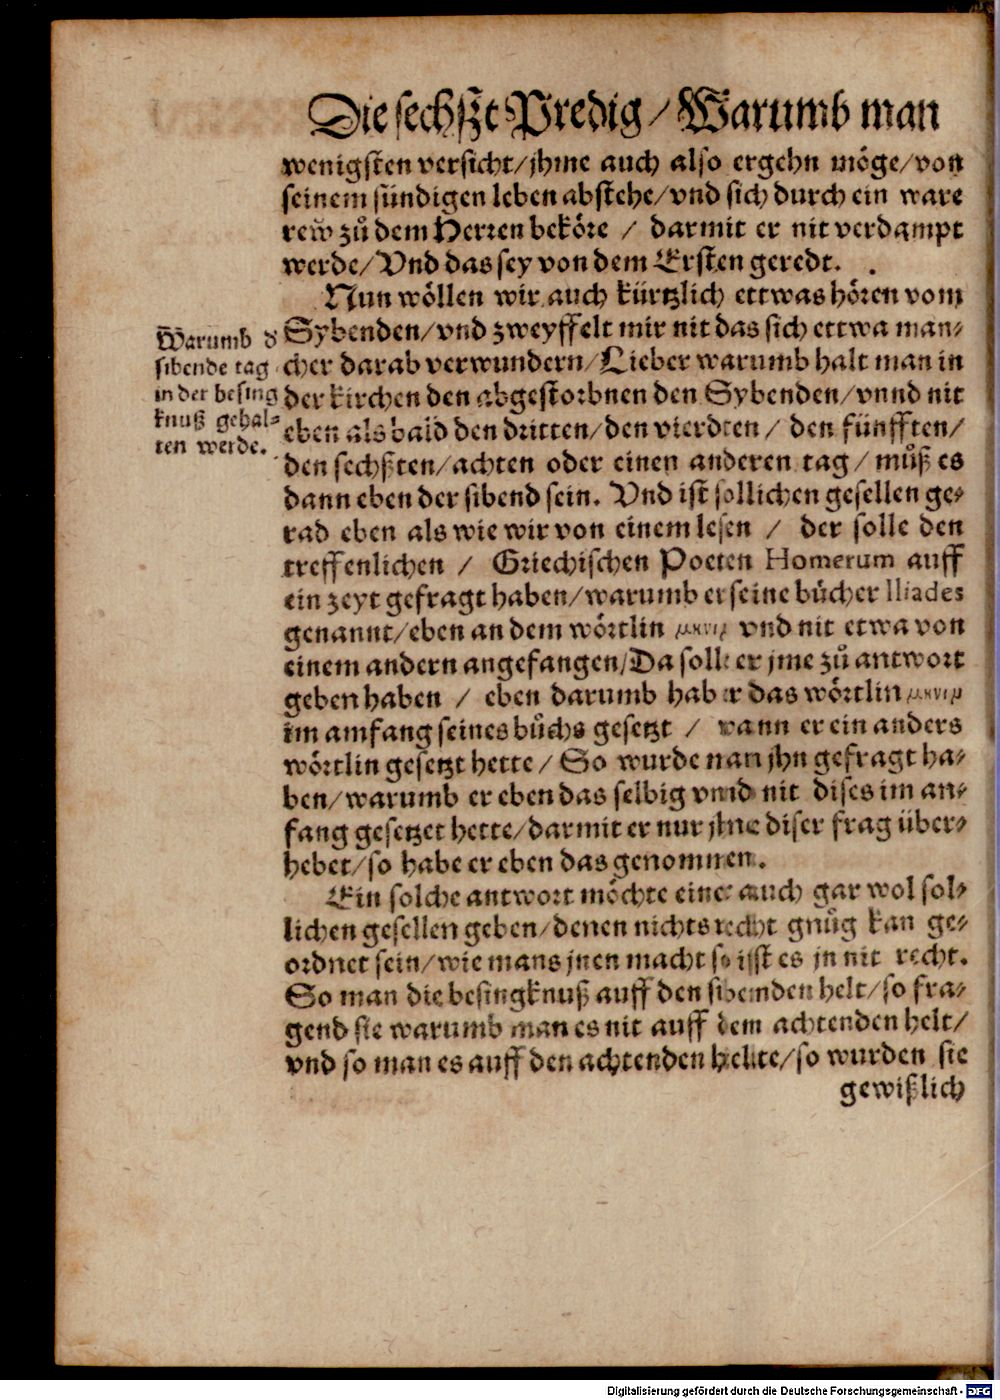 Die sechszt Predig / Warumb man
wenigsten versicht/ jhme auch also ergehn möge/ von
seinem sündigen leben abstehe/ vnd sich durch ein ware
rew̃ zů dem Herren beköre / darmit er nit verdampt
werde/ Vnd das sey von dem Ersten geredt.
Nun wöllen wir auch kürtzlich ettwas hören vom
Sybenden/ vnd zweyffelt mir nit das sich ettwa man⸗
cher darab verwundern/ Lieber warumb halt man in
der kirchen den abgestorbnen den Sybenden/ vnnd nit
eben als bald den dritten/ den vierdten / den fünfften/
den sechßten/ achten oder einen anderen tag / můß es
dann eben der sibend sein. Vnd ist sollichen gesellen ge⸗
rad eben als wie wir von einem lesen / der solle den
treffenlichen / Griechischen Poeten Homerum auff
ein zeyt gefragt haben/ warumb er seine bücher Iliades
genannt/ eben an dem wörtlin μηνιμ vnd nit etwa von
einem andern angefangen/ Da solle er jme zů antwort
geben haben / eben darumb hab er das wörtlin μηνιμ
im amfang seines bůchs gesetzt / wann er ein anders
wörtlin gesetzt hette/ So wurde man jhn gefragt ha⸗
ben/ warumb er eben das selbig vnnd nit dises im an⸗
fang gesetzet hette/ darmit er nur jhne diser frag über⸗
hebet/ so habe er eben das genommen.
Ein solche antwort möchte einer auch gar wol sol⸗
lichen gesellen geben/ denen nichts recht gnůg kan ge⸗
ordnet sein/ wie mans jnen macht so isst es jn nit recht.
So man die besingknuß auff den sibenden helt/ so fra⸗
gend sie warumb man es nit auff dem achtenden helt/
vnd so man es auff den achtenden helte/ so wurden sie
gewißlich
Warumb d'
sibende tag
in der besing
knuß gehal⸗
ten werde.
Digitalisierung gefördert durch die Deutsche Forschungsgemeinschaft - DFG